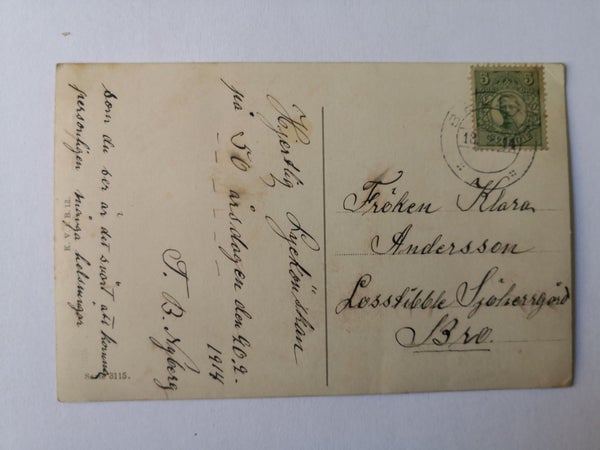 Hjertlig Lyckönskan
på 50 årsdagen den 20.2-
1914
T. B. Nyberg
som du ser är det svårt att komma
personligen många helsningar
Fröken Klara
Andersson
Losstibble Sjöherrgård
Bro.
5 5
18 2 14
Serie 3115.